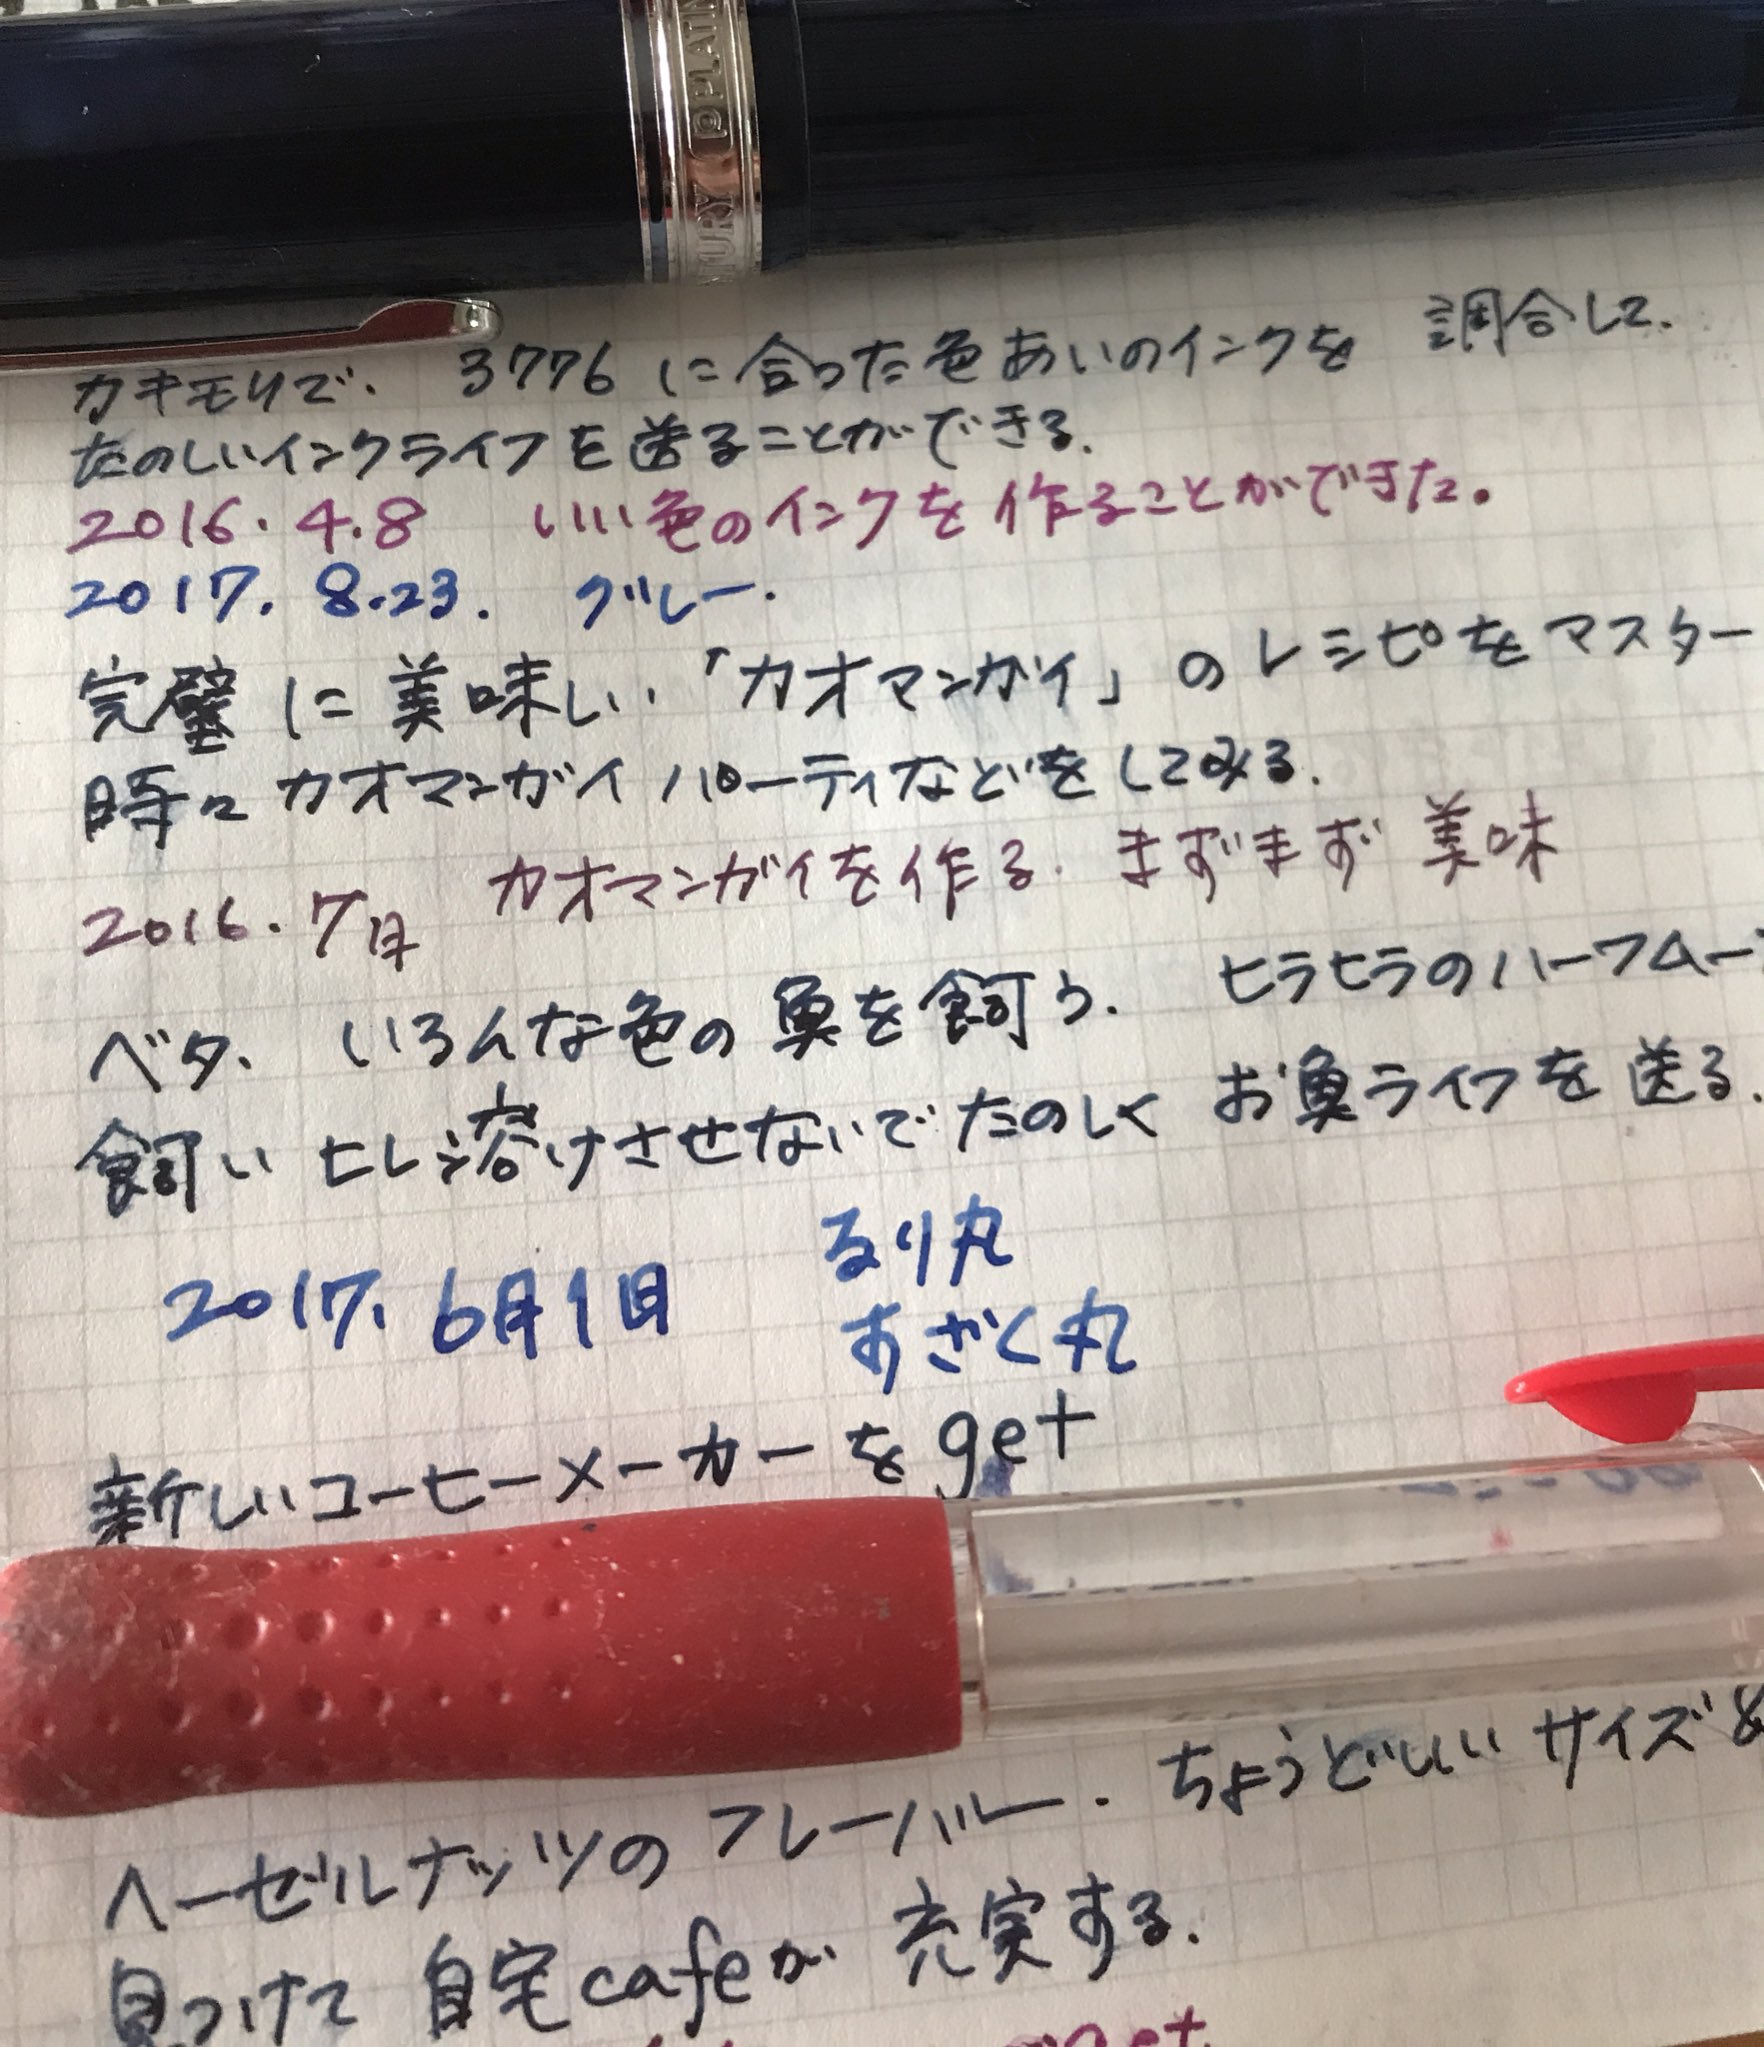 PLATIN
NTURY
カキモリで、3776に合った色あいのインクを 調合して、
たのしいインクライフを送ることができる。
2016.4.8 いい色のインクを作ることができた。
2017.8.23. グレー.
完璧に美味しい「カオマンガイ」のレシピをマスター
時々カオマンガイパーティなどをしてみる.
2016.7月 カオマンガイを作る. まずまず美味
ベタ、いろんな色の魚を飼う. ヒラヒラのハーフムー
飼い ヒレ溶けさせないでたのしくお魚ライフを送る.
2017.6月1日 るり丸
すざく丸
新しいコーヒーメーカーをget
ちょうどいいサイズ
ヘーゼルナッツのフレーバー.
見つけて自宅cafeが充実する.
get